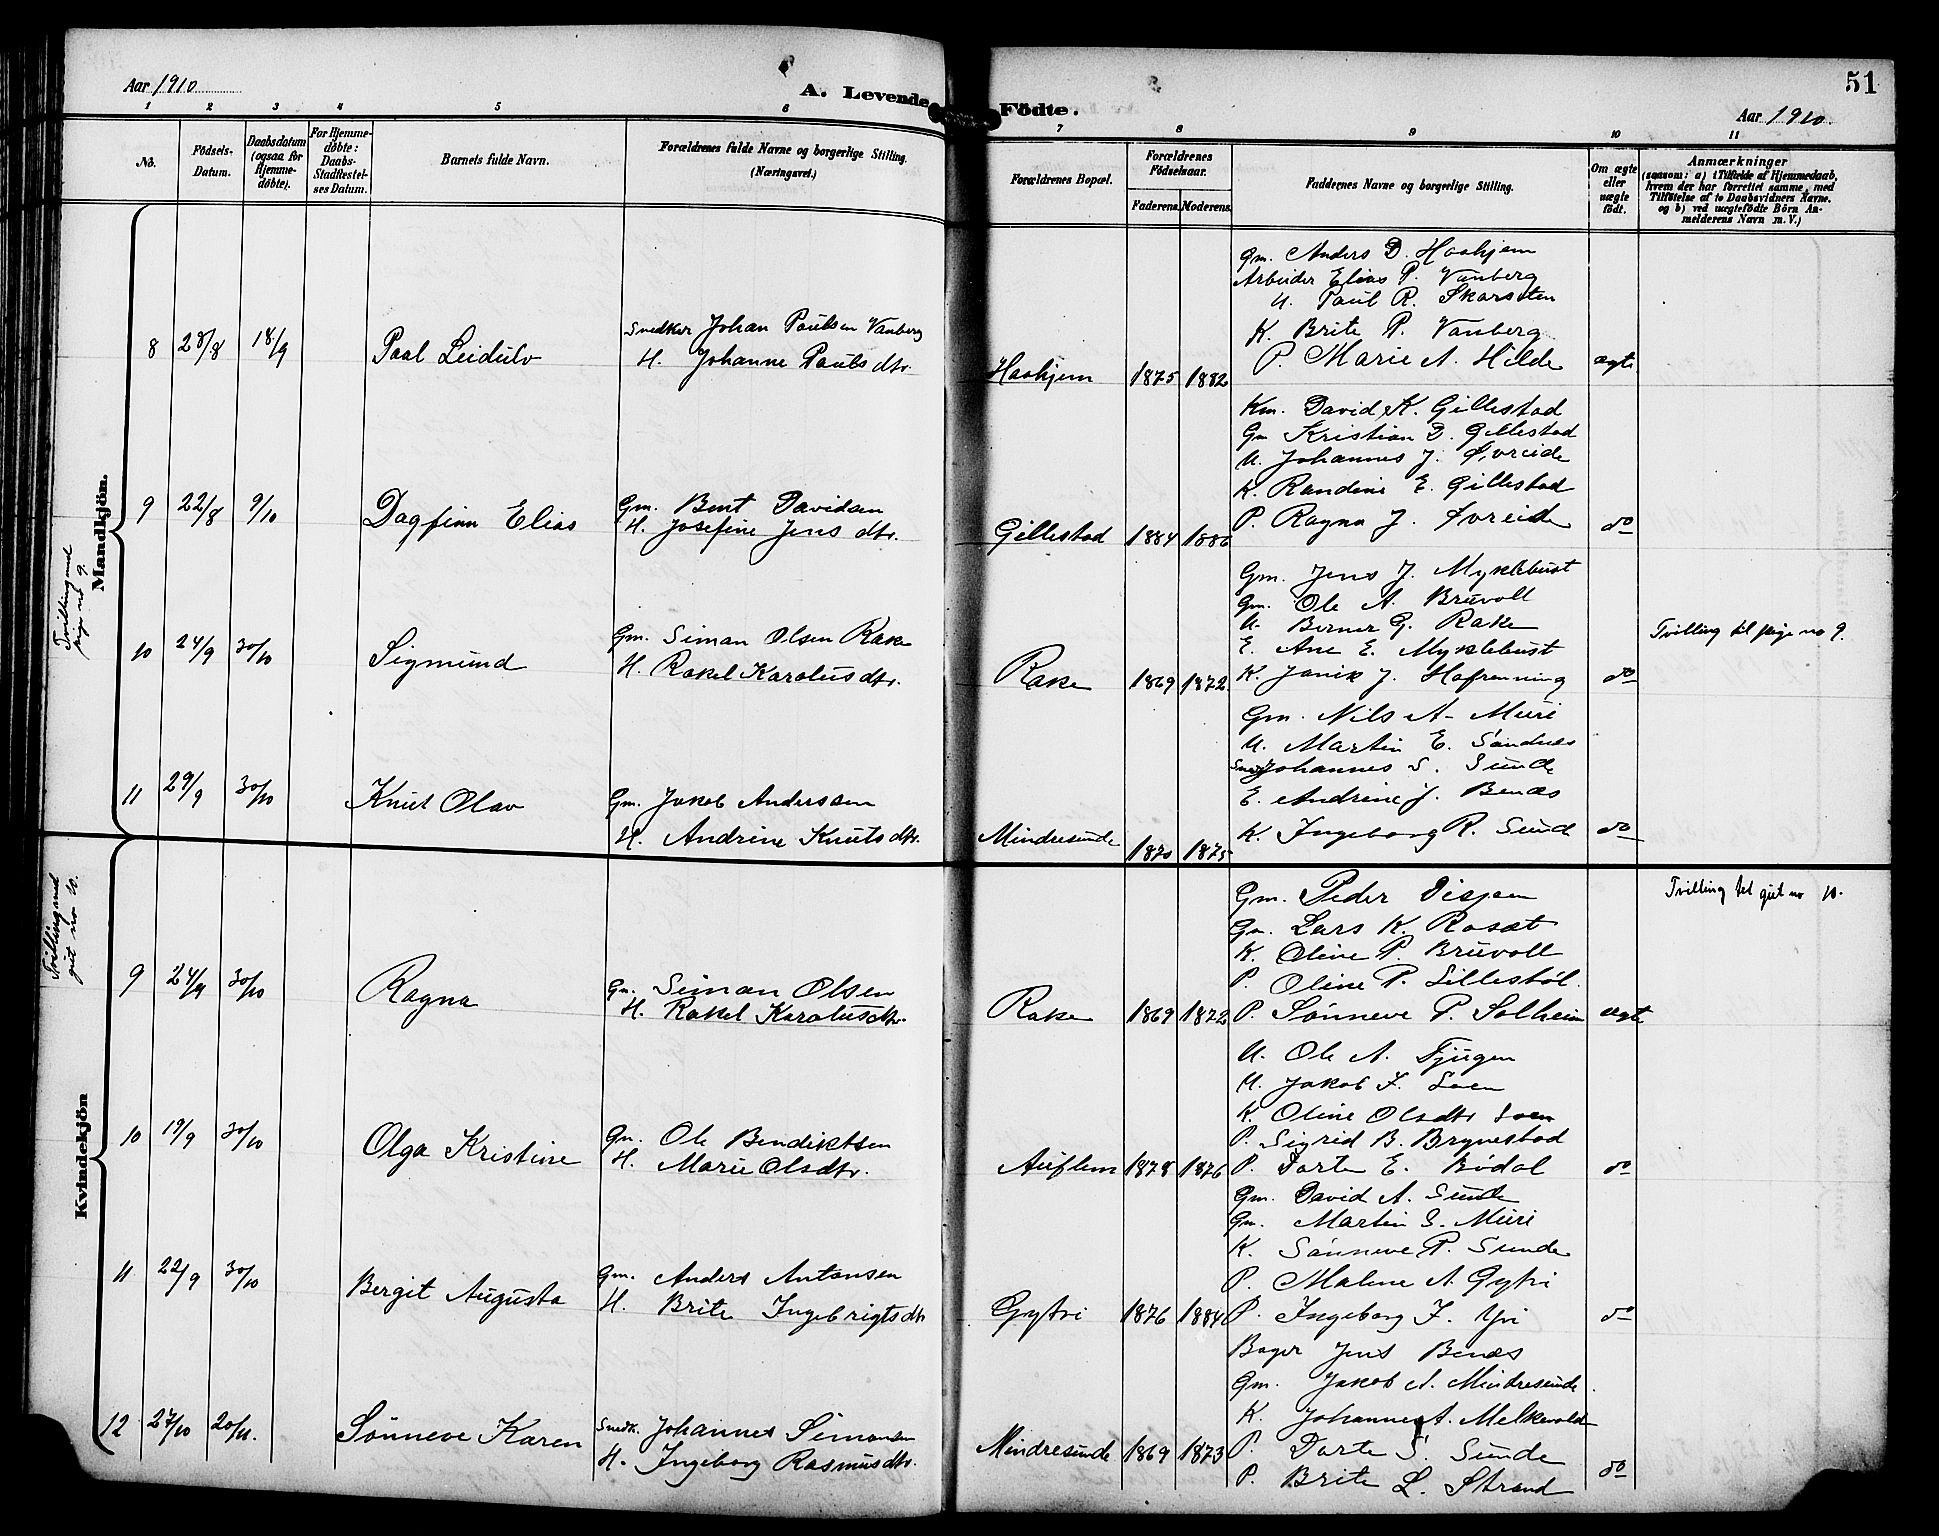 51
Aar 1910
A. Levende Födte.
Aar 1910.
1 2 3 4 5 6 7 8 9 10 11
No.
Födsels-
Datum.
Daabsdatum
(ogsaa for
Hjemme-
døbte).
For Hjemme-
døbte:
Daabs-
Stadfestel-
ses Datum.
Barnets fulde Navn.
Forældrenes fulde Navne og borgerlige Stilling.
(Næringsvei.)
Forældrenes Bopæl.
Forældrenes
Födselsaar.
Faderens. Moderens.
Faddernes Navne og borgerlige Stilling.
Om ægte
eller
uægte
født.
Anmærkninger
(saasom: a) i Tilfælde af Hjemmedaab,
hvem der har forrettet samme, med
Tilföielse af to Daabsvidners Navne.
og b) ved uægtefödte Börn An-
melderens Navn m. V.)
Mandkjön.
8 28/8 18/9 Paal Leidulv
Snedker Johan Paulsen Vanberg
H. Johanne Pauls dtr.
Haahjem 1875 1882
Gm. Anders D. Haahjem
Arbeider Elias P. Vanberg
U. Paul R. Skarsten
K. Brite P. Vanberg
P. Marie A. Hilde
ægte
9 22/8 9/10 Dagfinn Elias
Gm. Bent Davidsen
H. Josefine Jens dtr.
Gillestad 1884 1886
Km. David K. Gillestad
Gm Kristian D. Gillestad
U. Johannes J. Øvreide
K. Randine E. Gillestad
P. Ragna J. Øvreide
do
Tvilling med
pige no 9.
10 24/9 30/10 Sigmund
Gm. Simon Olsen Rake
H. Rakel Karolus dtr.
Rake 1869 1872
Gm. Jens J. Myklebust
Gm. Ole A. Bruvoll
U. Berner G. Rake
E. Ane E. Myklebust
K. Janik J. Hafrenning
do
Tvilling til pige no 9.
11 29/9 30/10 Knut Olav
Gm. Jakob Anderssen
H. Andrine Knuts dtr.
Mindresunde 1870 1875
Gm. Nils A. Muri
U. Martin E. Sandnes
Snedk Johannes S. Sunde
E. Andrine J. Benæs
K. Ingeborg R. Sund
do
Kvindekjön
Tvilling med
gut no 10.
9 24/9 30/10 Ragna
Gm. Simon Olsen
H. Rakel Karolusdtr.
Rake 1869 1872
Gm. Peder Visjen
Gm. Lars K. Rosæt
K. Oline P. Bruvoll
P. Oline P. Lillestøl.
P. Sønneve P. Solheim
ægte
Tvilling til gut no 10.
10 19/9 30/10 Olga Kristine
Gm. Ole Bendiktsen
H. Marie Olsdtr.
Auflem 1878 1876
U. Ole A. Tjugen
U. Jakob J. Loen
K. Oline Olsdtr Loen
P. Sigrid B. Brynestad
P. Dorte E. Bødal
do
11 22/9 30/10 Bergit Augusta
Gm. Anders Antonsen
H. Brite Ingebrigts dtr
Gytri 1876 1884
Gm. David A. Sunde
Gm. Martin S. Muri
K. Sønneve P. Sunde
P. Malene A. Gytri
P. Ingeborg J. Yri
do
12 27/10 20/11. Sønneve Karen
Snedk. Johannes Simonsen
H. Ingeborg Rasmusdtr.
Mindresunde 1869 1873
Bager Jens Benæs
Gm. Jakob A. Mindresunde.
K. Johanne A. Melkevold
P. Dorte S. Sunde
P. Brite L. Strand
do